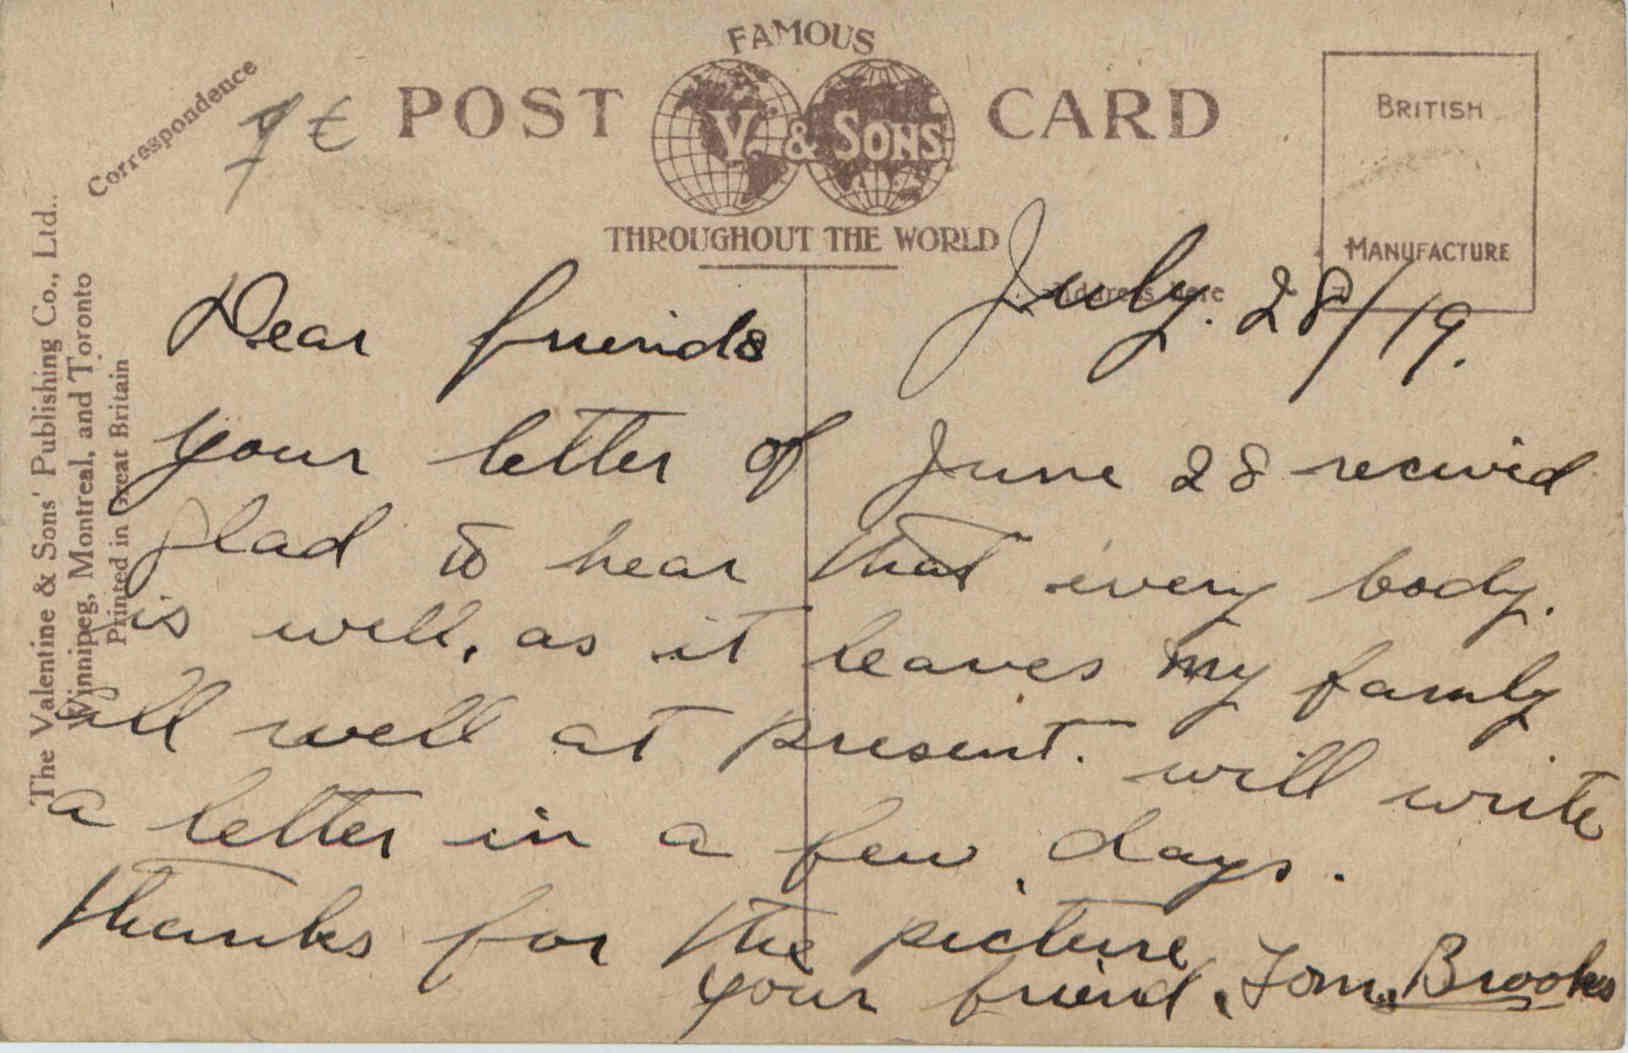 Correspondence
7 €
FAMOUS
POST CARD
V. & SONS
THROUGHOUT THE WORLD
BRITISH
MANUFACTURE
The Valentine & Sons' Publishing Co., Ltd..
Winnipeg, Montreal, and Toronto
Printed in Great Britain
July. 28/19.
Dear friends
your letter of June 28 recivid
glad to hear that every body.
is well, as it leaves my family
all well at present. will write
a letter in a few days.
thanks for the picture
your friend, Tom. Brooks